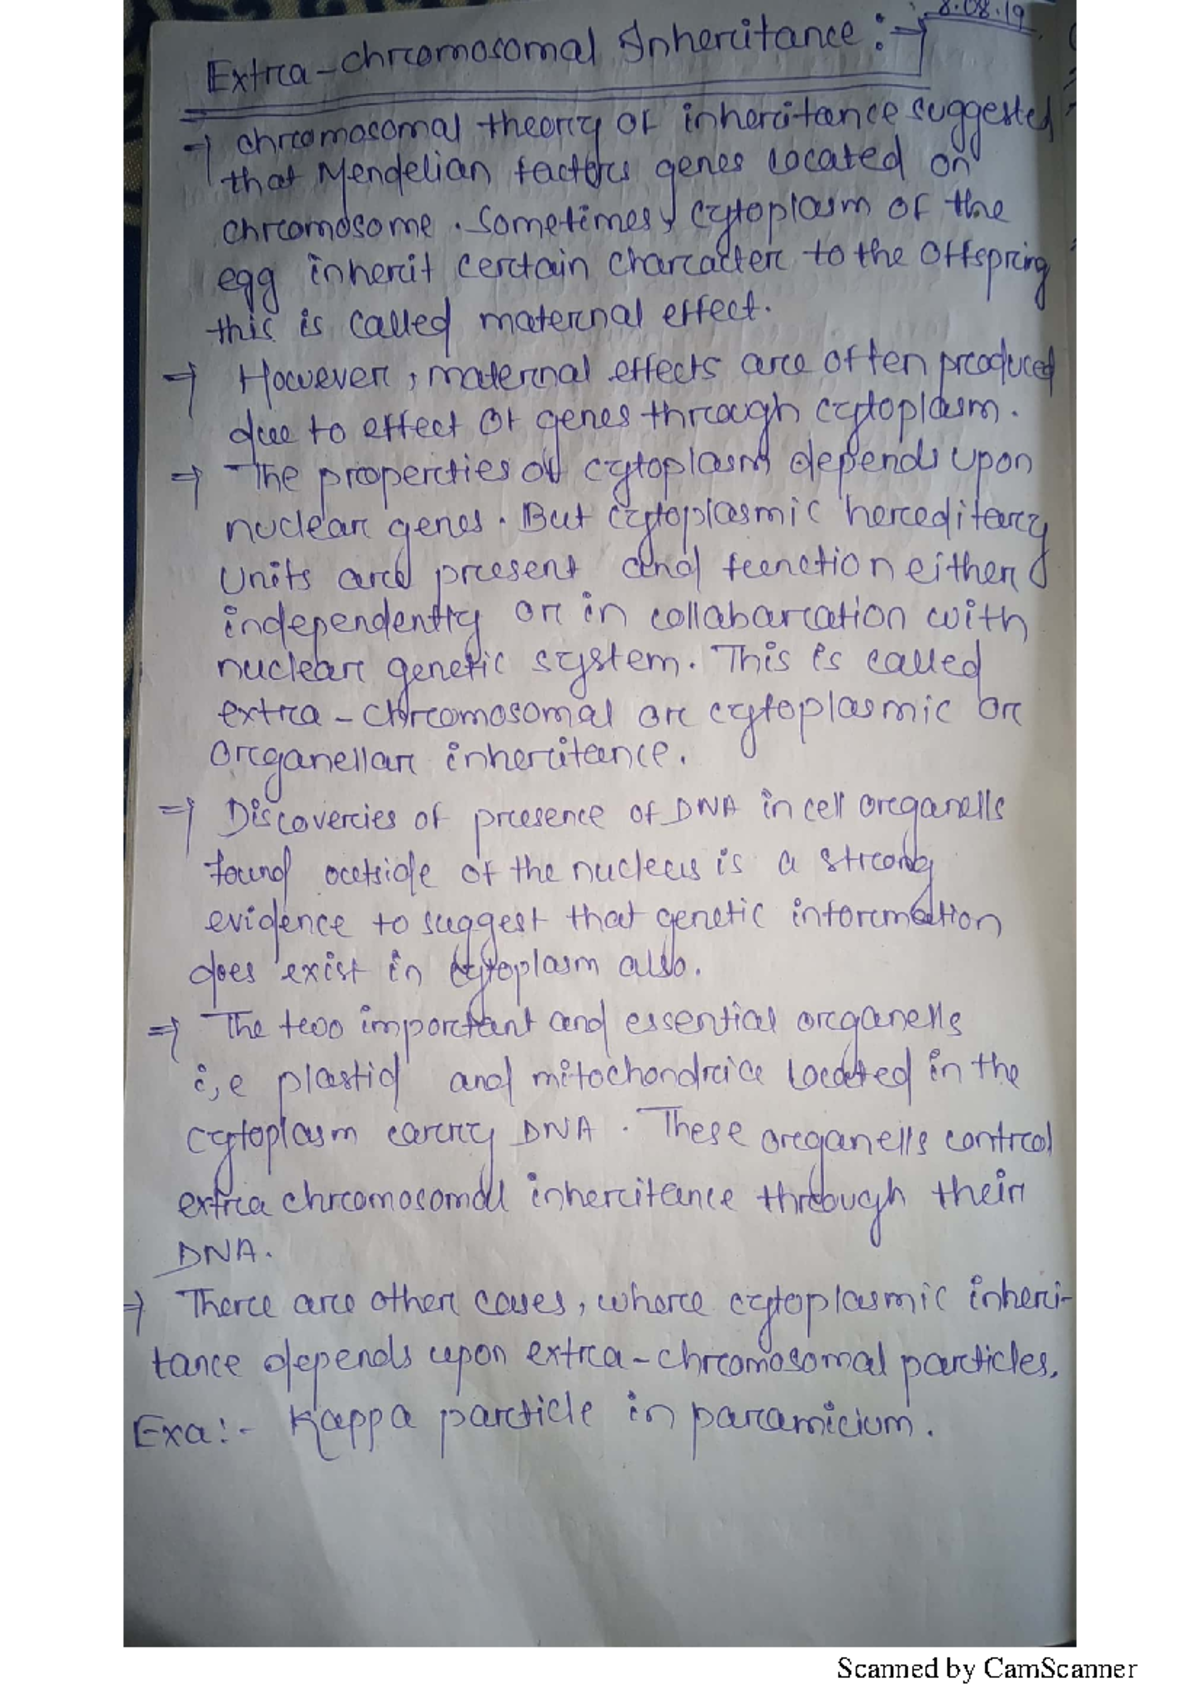 8.08.19
Extra-chromosomal Inheritance :-
⇒ chromosomal theory of inheritance suggested
that Mendelian factors genes located on
chromosome. Sometimes, cytoplasm of the
egg inherit certain character to the offspring
this is called maternal effect.
⇒ However, maternal effects are often produced
due to effect of genes through cytoplasm.
⇒ The properties of cytoplasm depends upon
nuclear genes. But cytoplasmic hereditary
units are present and function either
independently or in collabaration with
nuclear genetic system. This is called
extra-chromosomal or cytoplasmic or
organellar inheritance.
⇒ Discoveries of presence of DNA in cell organells
found outside of the nucleus is a strong
evidence to suggest that genetic information
does exist in cytoplasm also.
⇒ The two important and essential organells
i,e plastid and mitochondria located in the
cytoplasm carry DNA. These organells control
extra chromosomal inheritance through their
DNA.
⇒ There are other cases, where cytoplasmic inheri-
tance depends upon extra-chromosomal particles.
Exa:- Kappa particle in paramicium.
Scanned by CamScanner